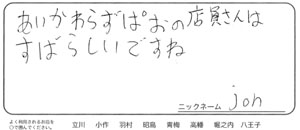 あいかわらずぱおの店員さんは
すばらしいですね
ニックネーム jon
よく利用されるお店を
○で囲んでください。
立川 小作 羽村 昭島 青梅 高幡 堀之内 八王子